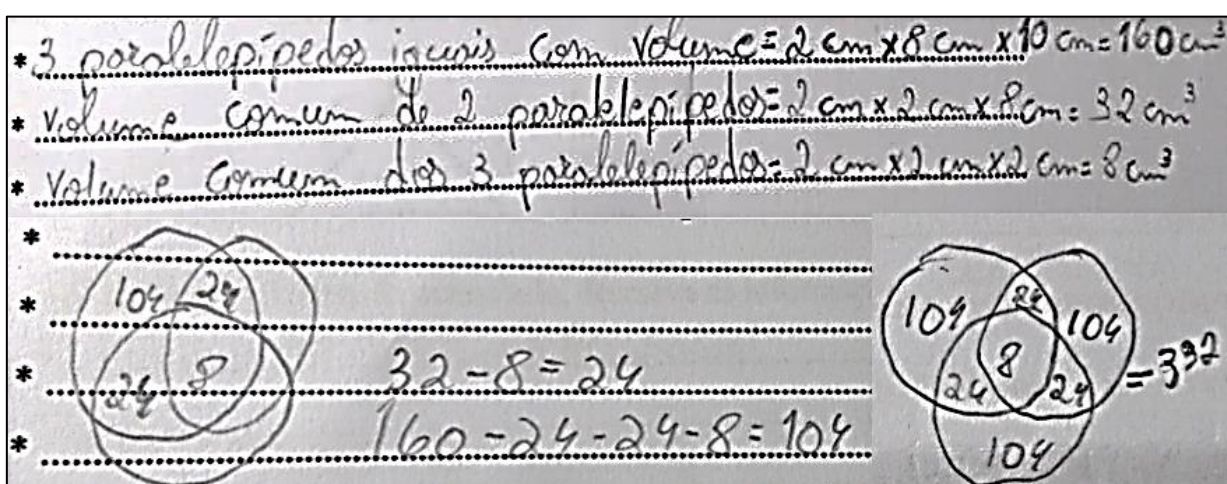 * 3 paralelepípedos iguais com volume = 2 cm x 8 cm x 10 cm = 160 cm³
* volume comum de 2 paralelepípedos = 2 cm x 2 cm x 8 cm = 32 cm³
* volume comum dos 3 paralelepípedos = 2 cm x 2 cm x 2 cm = 8 cm³
*
* 104 24
* 24 8 32 - 8 = 24
* 160 - 24 - 24 - 8 = 104
104 24 104
24 8 24 = 332
104